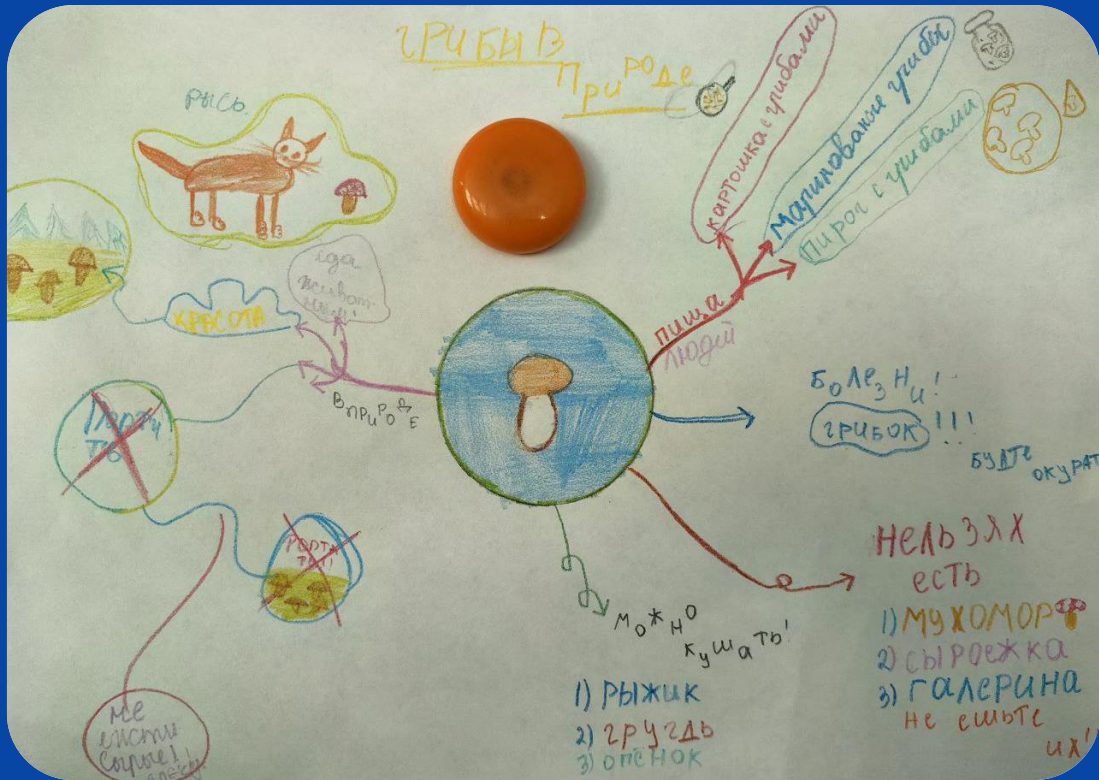 ГРИБЫ В
ПРИРОДЕ
РЫСЬ
еда
живот
ным!
КРАСОТА
В ПРИРОДЕ
Порти
ть
Порти
ть!!
не
ексти
сырые!!
картошка с грибами
маринованые грибы
пирог с грибами
ПИЩА
ЛЮДЕЙ
БОЛЕЗНИ!
ГРИБОК!!!
БУДТЕ
ОКУРАТ
НЕЛЬЗЯХ
ЕСТЬ
1) МУХОМОР
2) СЫРОЕЖКА
3) ГАЛЕРИНА
НЕ ЕШЬТЕ
ИХ!
МОЖНО
КУШАТЬ!
1) РЫЖИК
2) ГРУГДЬ
3) ОПЁНОК